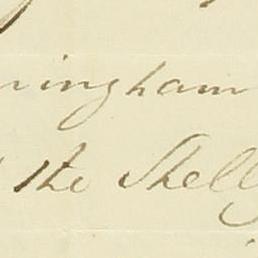 ningham
the Shelly